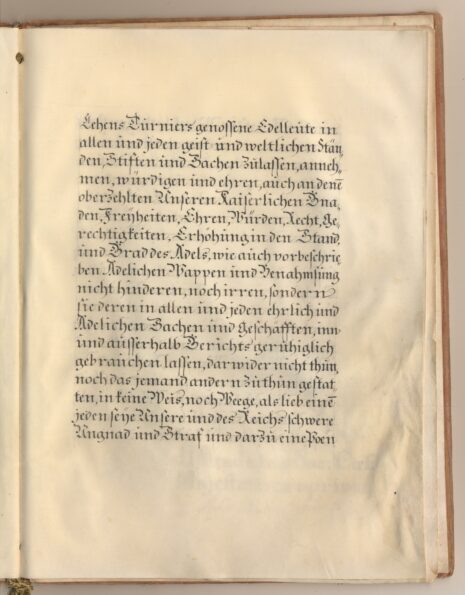 Lehens Turniers genossene Edelleüte in
allen ünd jeden geist ünd weltlichen Stän„
den, Stiften ünd Sachen Zülassen, anneh„
men, würdigen ünd ehren, aüch an denē
oberzehlten Unseren Kaiserlichen Gna„
den, Freÿheiten, Ehren, Würden, Recht, Ge„
rechtigkeiten, Erhöhüng in den Stand,
ünd Grad des Adels, wie aüch vorbeschrie„
ben Adelichen Wappen ünd Benahmsüng
nicht hinderen, noch irren, sondern
sie deren in allen ünd jeden ehrlich ünd
Adelichen Sachen ünd Geschäfften, inn„
ünd aüsserhalb Gerichts gerühiglich
gebraüchen lassen, darwider nicht thün,
noch das jemand andern zü thün gestat„
ten, in keine Weis, noch Weege, als lieb einē
jeden seÿe Unsere ünd des Reichs schwere
Ungnad ünd Straf ünd darzü eine Poen